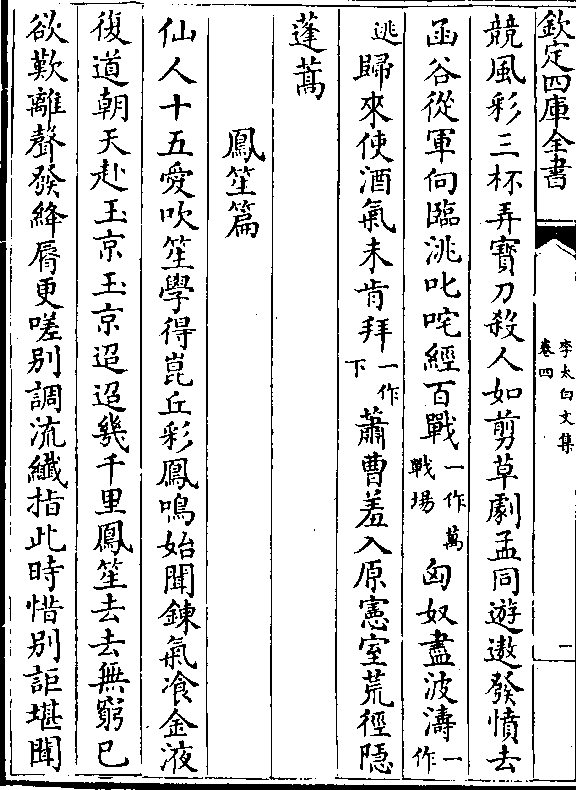 欽定四庫全書
李太白文集
卷四
一
競風彩三杯弄寳刀殺人如剪草劇孟同遊遨發憤去
函谷從軍向臨洮叱咤經百戰一作萬戰場匈奴盡波濤一作
逃歸來使酒氣未肯拜一作下蕭曹羞入原憲室荒徑隠
蓬蒿
鳳笙篇
仙人十五愛吹笙學得崑丘彩鳳鳴始聞鍊氣飡金液
復道朝天赴玉京玉京迢迢幾千里鳳笙去去無窮已
欲歎離聲發絳脣更嗟别調流纖指此時惜别詎堪聞